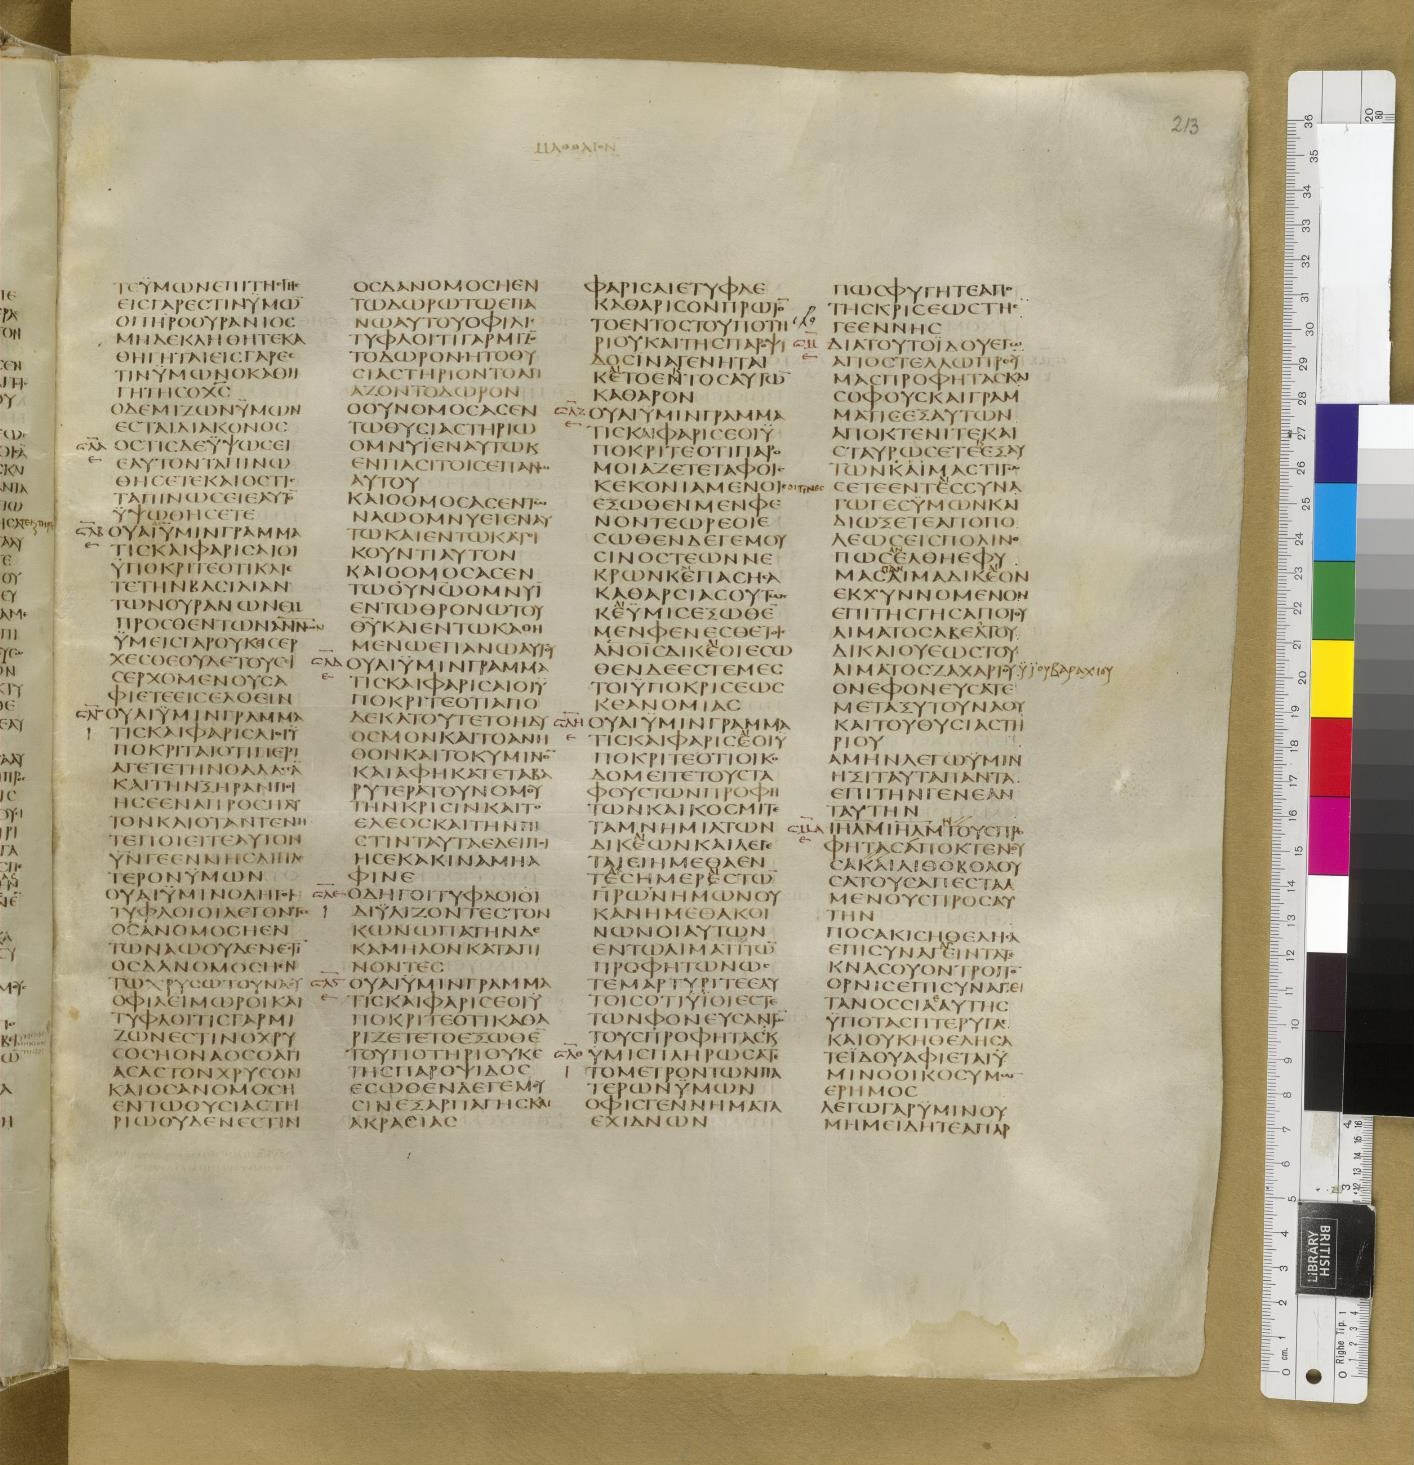 213
ΤΕΫΜΩΝΕΠΙΤΗΓΗ
ΕΙΣΓΑΡΕΣΤΙΝΫΜΩ̅
ΟΠΗΡΟΟΥΡΑΝΙΟΣ
ΜΗΔΕΚΛΗΘΗΤΕΚΑ
ΘΗΓΗΤΑΙΕΙΣΓΑΡΕΣ
ΤΙΝΫΜΩΝΟΚΑΘΗ
ΓΗΤΗΣΟΧ̅Σ̅
ΟΔΕΜΙΖΩΝΫΜΩΝ
ΕΣΤΑΙΔΙΑΚΟΝΟΣ
ΟΣΤΙΣΔΕΫΨΩΣΕΙ
ΕΑΥΤΟΝΤΑΠΙΝΩ
ΘΗΣΕΤΕΚΑΙΟΣΤΙΣ
ΤΑΠΙΝΩΣΕΙΕΑΥΤΟ̅
ΫΨΩΘΗΣΕΤΕ
ΟΥΑΙΫΜΙΝΓΡΑΜΜΑ
ΤΙΣΚΑΙΦΑΡΙΣΑΙΟΙ
ΫΠΟΚΡΙΤΕΟΤΙΚΛΙ
ΤΕΤΗΝΒΑΣΙΛΙΑΝ
ΤΩΝΟΥΡΑΝΩΝΕΜ
ΠΡΟΣΘΕΝΤΩΝΑΝΝΩΝ
ΫΜΕΙΣΓΑΡΟΥΚΕΙΣΕΡ
ΧΕΣΘΕΟΥΔΕΤΟΥΣΙ
ΣΕΡΧΟΜΕΝΟΥΣΑ
ΦΙΕΤΕΕΙΣΕΛΘΕΙΝ
ΟΥΑΙΫΜΙΝΓΡΑΜΜΑ
ΤΙΣΚΑΙΦΑΡΙΣΑΙΟΙΫ
ΠΟΚΡΙΤΑΙΟΤΙΠΕΡΙ
ΑΓΕΤΕΤΗΝΘΑΛΑΣΣΑ̅
ΚΑΙΤΗΝΞΗΡΑΝΠΟΙ
ΗΣΕΕΝΑΠΡΟΣΗΛΥ
ΤΟΝΚΑΙΟΤΑΝΓΕΝΗ
ΤΕΠΟΙΕΙΤΕΑΥΤΟΝ
ΫΝΓΕΕΝΝΗΣΔΙΠΛΟ
ΤΕΡΟΝΫΜΩΝ
ΟΥΑΙΫΜΙΝΟΔΗΓΟΙ
ΤΥΦΛΟΙΟΙΛΕΓΟΝΤΕΣ
ΟΣΑΝΟΜΟΣΗΕΝ
ΤΩΝΑΩΟΥΔΕΝΕΣΤΙ̅
ΟΣΔΑΝΟΜΟΣΗΕΝ
ΤΩΧΡΥΣΩΤΟΥΝΑΟΥ
ΟΦΙΛΕΙΜΩΡΟΙΚΑΙ
ΤΥΦΛΟΙΤΙΣΓΑΡΜΙ
ΖΩΝΕΣΤΙΝΟΧΡΥ
ΣΟΣΗΟΝΑΟΣΟΑΓΙ
ΑΣΑΣΤΟΝΧΡΥΣΟΝ
ΚΑΙΟΣΑΝΟΜΟΣΗ
ΕΝΤΩΘΥΣΙΑΣΤΗ
ΡΙΩΟΥΔΕΝΕΣΤΙΝ
ΟΣΔΑΝΟΜΟΣΗΕΝ
ΤΩΔΩΡΩΤΩΕΠΑ
ΝΩΑΥΤΟΥΟΦΙΛΙ
ΤΥΦΛΟΙΤΙΓΑΡΜΙΖΟ̅
ΤΟΔΩΡΟΝΗΤΟΘΥ
ΣΙΑΣΤΗΡΙΟΝΤΟΑΓΙ
ΑΖΟΝΤΟΔΩΡΟΝ
ΟΟΥΝΟΜΟΣΑΣΕΝ
ΤΩΘΥΣΙΑΣΤΗΡΙΩ
ΟΜΝΥΪΕΝΑΥΤΩΚ
ΕΝΠΑΣΙΤΟΙΣΕΠΑΝΩ
ΑΥΤΟΥ
ΚΑΙΟΟΜΟΣΑΣΕΝΤΩ
ΝΑΩΟΜΝΥΕΙΕΝΑΥ
ΤΩΚΑΙΕΝΤΩΚΑΤΟΙ
ΚΟΥΝΤΙΑΥΤΟΝ
ΚΑΙΟΟΜΟΣΑΣΕΝ
ΤΩΟΥΝΩΟΜΝΥΪ
ΕΝΤΩΘΡΟΝΩΤΟΥ
Θ̅Υ̅ΚΑΙΕΝΤΩΚΑΘΗ
ΜΕΝΩΕΠΑΝΩΑΥΤΟΥ
ΟΥΑΙΫΜΙΝΓΡΑΜΜΑ
ΤΙΣΚΑΙΦΑΡΙΣΑΙΟΙΫ
ΠΟΚΡΙΤΕΟΤΙΑΠΟ
ΔΕΚΑΤΟΥΤΕΤΟΗΔΥ
ΟΣΜΟΝΚΑΙΤΟΑΝΗ
ΘΟΝΚΑΙΤΟΚΥΜΙΝΟ̅
ΚΑΙΑΦΗΚΑΤΕΤΑΒΑ
ΡΥΤΕΡΑΤΟΥΝΟΜΟΥ
ΤΗΝΚΡΙΣΙΝΚΑΙΤΟ
ΕΛΕΟΣΚΑΙΤΗΝΠΙ
ΣΤΙΝΤΑΥΤΑΕΔΕΙΠΟΙ
ΗΣΕΚΑΚΙΝΑΜΗΑ
ΦΙΝΕ
ΟΔΗΓΟΙΤΥΦΛΟΙΟΙ
ΔΙΫΛΙΖΟΝΤΕΣΤΟΝ
ΚΩΝΩΠΑΤΗΝΔΕ
ΚΑΜΗΛΟΝΚΑΤΑΠΙ
ΝΟΝΤΕΣ
ΟΥΑΙΫΜΙΝΓΡΑΜΜΑ
ΤΙΣΚΑΙΦΑΡΙΣΕΟΙΫ
ΠΟΚΡΙΤΕΟΤΙΚΑΘΑ
ΡΙΖΕΤΕΤΟΕΞΩΘΕ̅
ΤΟΥΠΟΤΗΡΙΟΥΚΕ
ΤΗΣΠΑΡΟΨΙΔΟΣ
ΕΣΩΘΕΝΔΕΓΕΜΟΥ
ΣΙΝΕΞΑΡΠΑΓΗΣΚΑΙ
ΑΚΡΑΣΙΑΣ
ΦΑΡΙΣΑΙΕΤΥΦΛΕ
ΚΑΘΑΡΙΣΟΝΠΡΩΤΟ̅
ΤΟΕΝΤΟΣΤΟΥΠΟΤΗ
ΡΙΟΥΚΑΙΤΗΣΠΑΡΟΨΙ
ΔΟΣΙΝΑΓΕΝΗΤΑΙ
ΚΕΤΟΕΝΤΟΣΑΥΤΩ̅
ΚΑΘΑΡΟΝ
ΟΥΑΙΫΜΙΝΓΡΑΜΜΑ
ΤΙΣΚΑΙΦΑΡΙΣΕΟΙΫ
ΠΟΚΡΙΤΕΟΤΙΠΑΡΟ
ΜΟΙΑΖΕΤΕΤΑΦΟΙΣ
ΚΕΚΟΝΙΑΜΕΝΟΙΣΟΙΤΙΝΕΣ
ΕΞΩΘΕΝΜΕΝΦΕ
ΝΟΝΤΕΩΡΕΟΙΕ
ΣΩΘΕΝΔΕΓΕΜΟΥ
ΣΙΝΟΣΤΕΩΝΝΕ
ΚΡΩΝΚΕΠΑΣΗΣΑ
ΚΑΘΑΡΣΙΑΣΟΥΤΩΣ
ΚΕΫΜΙΣΕΞΩΘΕ̅
ΜΕΝΦΕΝΕΣΘΕΤΟΙ
ΑΝΟΙΣΔΙΚΕΟΙΕΣΩ
ΘΕΝΔΕΕΣΤΕΜΕΣ
ΤΟΙΫΠΟΚΡΙΣΕΩΣ
ΚΕΑΝΟΜΙΑΣ
ΟΥΑΙΫΜΙΝΓΡΑΜΜΑ
ΤΙΣΚΑΙΦΑΡΙΣΕΟΙΫ
ΠΟΚΡΙΤΕΟΤΙΟΙΚΟ
ΔΟΜΕΙΤΕΤΟΥΣΤΑ
ΦΟΥΣΤΩΝΠΡΟΦΗ
ΤΩΝΚΑΙΚΟΣΜΙΤΕ
ΤΑΜΝΗΜΙΑΤΩΝ
ΔΙΚΕΩΝΚΑΙΛΕΓΕ
ΤΑΙΕΙΗΜΕΘΑΕΝ
ΤΕΣΗΜΕΡΕΣΤΩ̅
ΠΡΩΝΗΜΩΝΟΥ
ΚΑΝΗΜΕΘΑΚΟΙ
ΝΩΝΟΙΑΥΤΩΝ
ΕΝΤΩΑΙΜΑΤΙΤΩ̅
ΠΡΟΦΗΤΩΝΩΣ
ΤΕΜΑΡΤΥΡΙΤΕΕΑΥ
ΤΟΙΣΟΤΙΫΙΟΙΕΣΤΕ
ΤΩΝΦΟΝΕΥΣΑΝΤΩ̅
ΤΟΥΣΠΡΟΦΗΤΑΣΚ
ΫΜΙΣΠΛΗΡΩΣΑΤΕ
ΤΟΜΕΤΡΟΝΤΩΝΠΑ
ΤΕΡΩΝΫΜΩΝ
ΟΦΙΣΓΕΝΝΗΜΑΤΑ
ΕΧΙΔΝΩΝ
ΠΩΣΦΥΓΗΤΕΑΠΟ
ΤΗΣΚΡΙΣΕΩΣΤΗΣ
ΓΕΕΝΝΗΣ
ΔΙΑΤΟΥΤΟΪΔΟΥΕΓΩ
ΑΠΟΣΤΕΛΛΩΠΡΟΥ
ΜΑΣΠΡΟΦΗΤΑΣΚΑΙ
ΣΟΦΟΥΣΚΑΙΓΡΑΜ
ΜΑΤΙΣΕΞΑΥΤΩΝ
ΑΠΟΚΤΕΝΙΤΕΚΑΙ
ΣΤΑΥΡΩΣΕΤΕΕΞΑΥ
ΤΩΝΚΑΙΜΑΣΤΙΓΩ
ΣΕΤΕΕΝΤΕΣΣΥΝΑ
ΓΩΓΕΣΫΜΩΝΚΑΙ
ΔΙΩΞΕΤΕΑΠΟΠΟ
ΛΕΩΣΕΙΣΠΟΛΙΝΟ
ΠΩΣΕΛΘΗΕΦΥ
ΜΑΣΑΙΜΑΔΙΚΕΟΝ
ΕΚΧΥΝΝΟΜΕΝΟΝ
ΕΠΙΤΗΣΓΗΣΑΠΟΤΟΥ
ΑΙΜΑΤΟΣΑΒΕΛΤΟΥ
ΔΙΚΑΙΟΥΕΩΣΤΟΥ
ΑΙΜΑΤΟΣΖΑΧΑΡΙΟΥΫΪΟΥΒΑΡΑΧΙΟΥ
ΟΝΕΦΟΝΕΥΣΑΤΕ
ΜΕΤΑΞΥΤΟΥΝΑΟΥ
ΚΑΙΤΟΥΘΥΣΙΑΣΤΗ
ΡΙΟΥ
ΑΜΗΝΛΕΓΩΫΜΙΝ
ΗΞΙΤΑΥΤΑΠΑΝΤΑ
ΕΠΙΤΗΝΓΕΝΕΑΝ
ΤΑΥΤΗΝ
ΙΗΛΜΙΗΛΜΤΟΥΣΠΡΟ
ΦΗΤΑΣΑΠΟΚΤΕΝΟΥ
ΣΑΚΑΙΛΙΘΟΒΟΛΟΥ
ΣΑΤΟΥΣΑΠΕΣΤΑΛ
ΜΕΝΟΥΣΠΡΟΣΑΥ
ΤΗΝ
ΠΟΣΑΚΙΣΗΘΕΛΗΣΑ
ΕΠΙΣΥΝΑΓΕΙΝΤΑΤΕ
ΚΝΑΣΟΥΟΝΤΡΟΠΟ̅
ΟΡΝΙΞΕΠΙΣΥΝΑΓΕΙ
ΤΑΝΟΣΣΙΑΕΑΥΤΗΣ
ΫΠΟΤΑΣΠΤΕΡΥΓΑΣ
ΚΑΙΟΥΚΗΘΕΛΗΣΑ
ΤΕΪΔΟΥΑΦΙΕΤΑΙΫ
ΜΙΝΟΟΙΚΟΣΥΜΩΝ
ΕΡΗΜΟΣ
ΛΕΓΩΓΑΡΫΜΙΝΟΥ
ΜΗΜΕΙΔΗΤΕΑΠΑΡ
BRITISH
LIBRARY